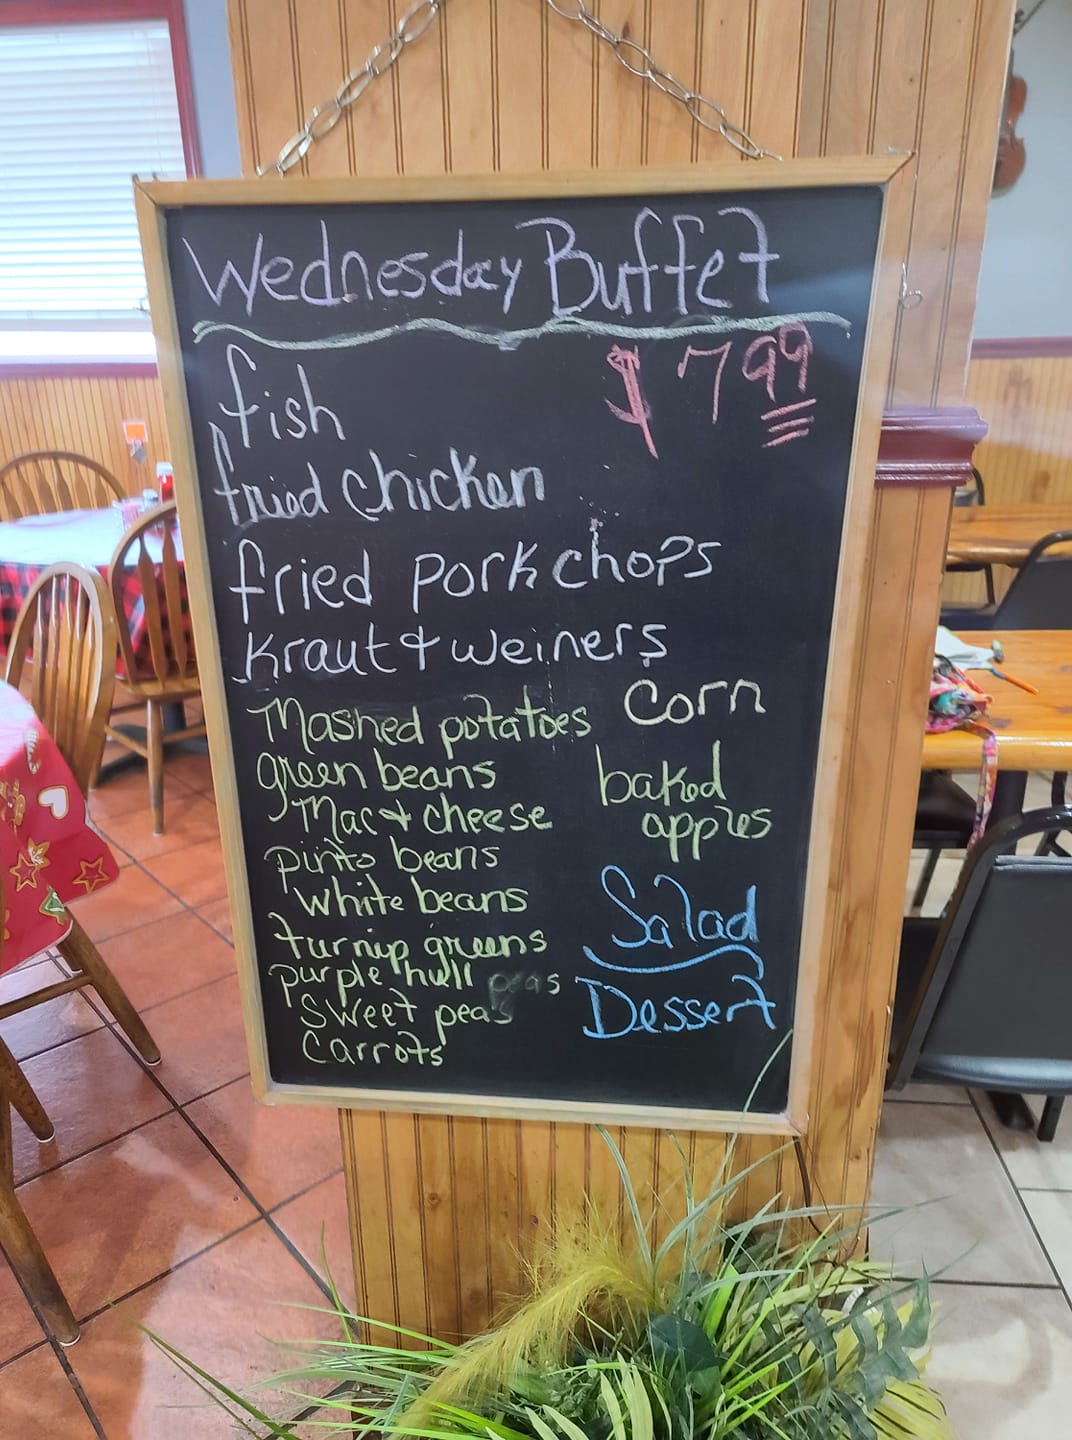 Wednesday Buffet
$7.99
fish
fried chicken
fried pork chops
Kraut & weiners
Mashed potatoes
green beans
Mac & cheese
pinto beans
White beans
turnip greens
purple hull peas
Sweet peas
Carrots
Corn
baked
apples
Salad
Dessert